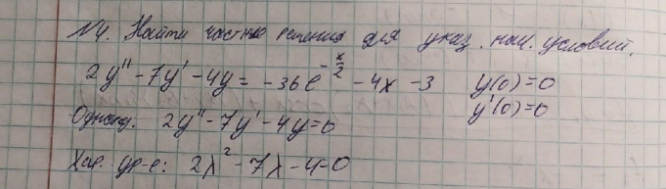 №4. Найти частное решения для указ. нач. условий.
2y'' - 7y' - 4y = -36e^{-x/2} - 4x - 3 y(0)=0
y'(0)=0
Однород. 2y'' - 7y' - 4y = 0
Хар. ур-е: 2λ² - 7λ - 4 = 0